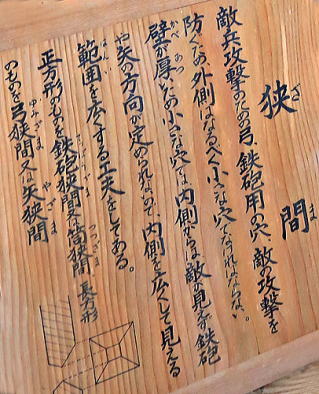 狭間
ざま
敵兵攻撃のための弓、鉄砲用の穴、敵の攻撃を
防ぐため外側はなるべく小さな穴でなければならない。
壁が厚いため小さな穴では内側からは敵が見えず鉄砲
や矢の方向が定められないので、内側を広くして見える
範囲を広くする工夫をしてある。
正方形のものを鉄砲狭間又は筒狭間 長方形
のものを弓狭間又は矢狭間